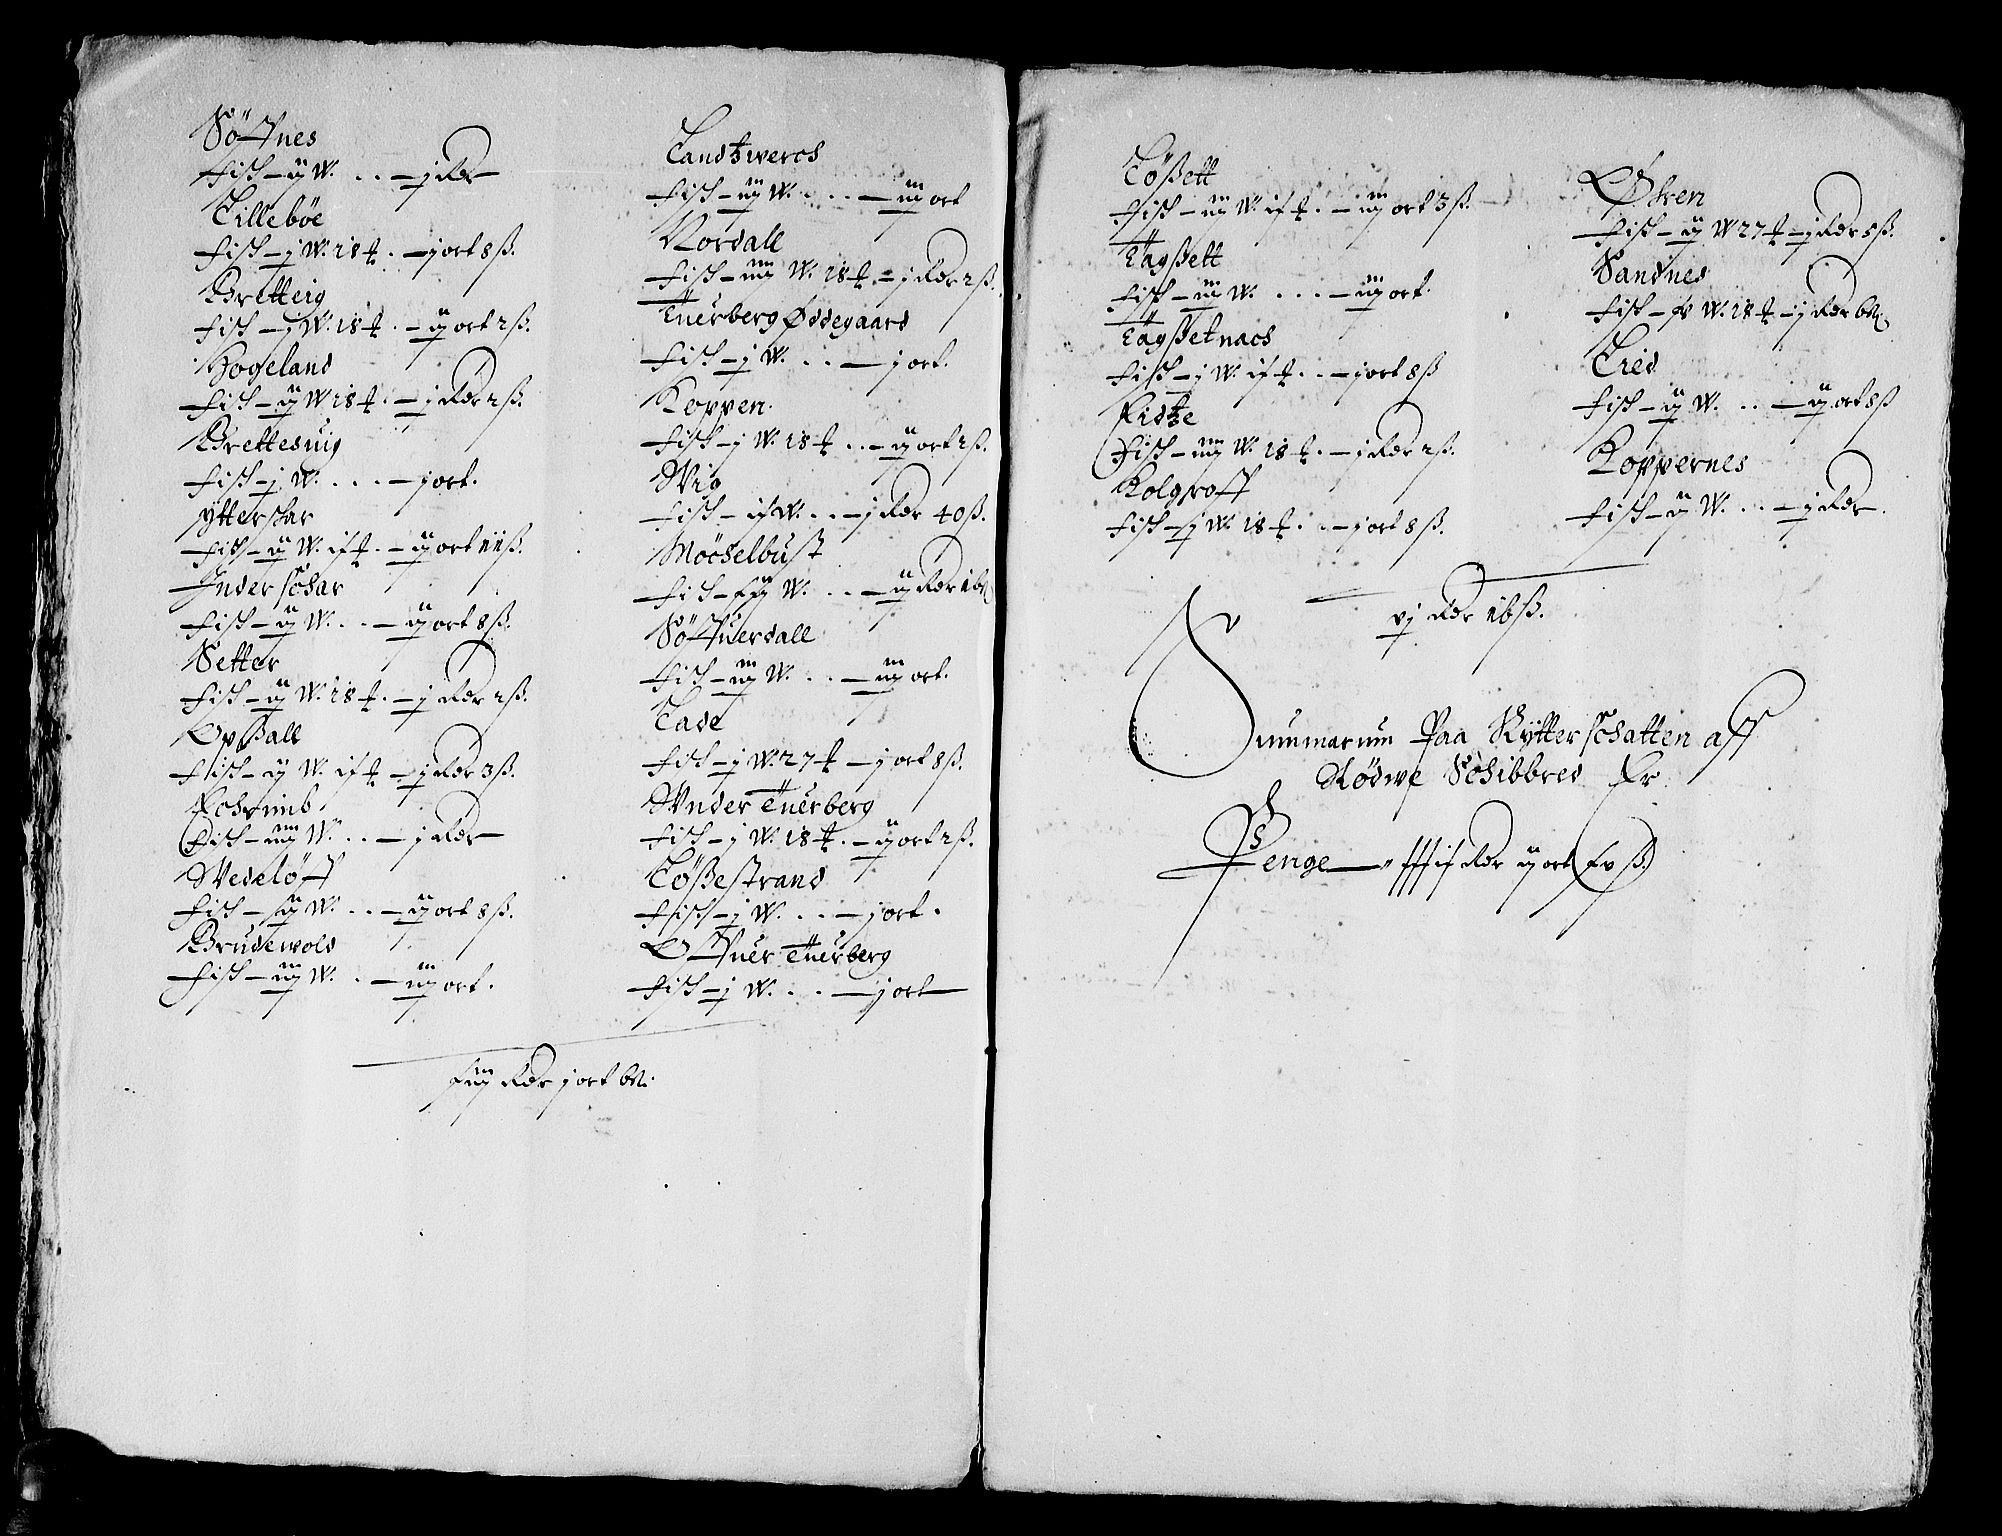 Söffnes
Fisk – ij W. . . – j dlr
Lilleböe
Fisk – j W. 18 ℔. – j ort 8 ß.
Bretteig
Fisk – j W. 18 ℔. – ij ort 2 ß.
Hogeland
Fisk – ij W 18 ℔. – j dlr 2 ß.
Brettesuig
Fisk – j W. . . . – j ort.
ytterskar
Fisk – ij W. ℔. – ij ort ß.
Inderschar
Fisk – ij W. . . – ij ort 8 ß.
Setter
Fisk – ij W. 18 ℔. – j dlr 2 ß.
Opßall
Fisk – ij W. ℔ – j dlr 3 ß.
Fisk – iiij W. . . – j dlr
Wedelöff
Fisk – ij W. . . – ij ort 8 ß.
Brudewold
Fisk – iij W. . – iij ort.
Landtzverch
Fisk – iij W. . . . – iij ort
Nordall
Fisk – iiij W. 18 ℔ – j dlr 2 ß.
Tuerberg Øddegaard
Fisk – j W. . . – j ort.
Koppen
Fisk – j W. 18 ℔ . . – ij ort 2 ß.
Wig
Fisk – W. . . – j dlr 40 ß.
Möchelbust
Fisk – W. . . – ij dlr 16 ß
Söffuerdall
Fisk – iij W. . . – iij ort.
Lade
Fisk – j W. 27 ℔ – j ort 8 ß.
Wnder Tuerberg
Fisk – j W. 18 ℔. – ij ort 2 ß.
Lößestrand
Fisk – j W. . . – j ort.
Offuer Tuerberg
Fisk – j W. . . – j ort
dlr j ort
Lößett
Fisk – iij W. ℔. – iij ort 3 ß.
Tägßett
Fisk – iij W. . . . – iij ort.
Tägßetnach
Fisk – j W. ℔ . . – j ort 8 ß
Eidtze
Fisk – iiij W. 18 ℔. – j dlr 2 ß.
Kolgroff
Fisk – j W. 18 ℔. . – j ort 8 ß.
Fisk – ij W 27 ℔ – j dlr 8 ß.
Sandnes
Fisk – W. 18 ℔ – j dlr
Fisk – ij W. . . – ij ort 8 ß
Koppernes
Fisk – ij W. . . – j dlr.
vj dlr 16 ß.
Summarum Paa Rytterschatten aff
Rödwe Schibbred Er
Penge dlr ij ort xv ß